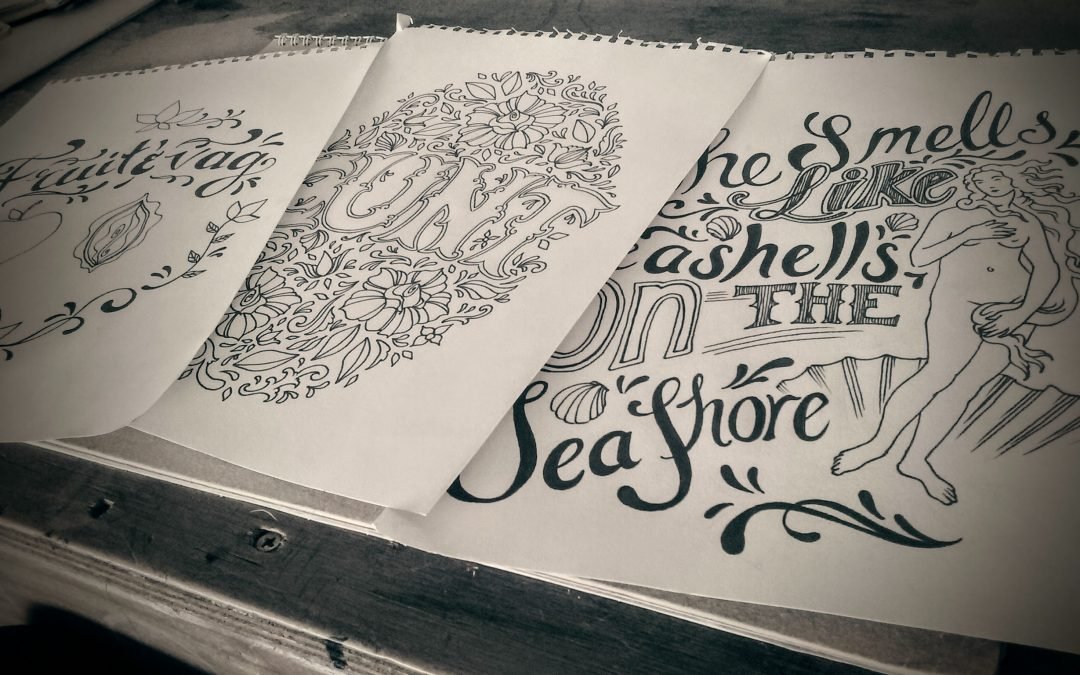 Fruitévag
UNT
he Smells
Like
eashell's
On THE
Sea Shore